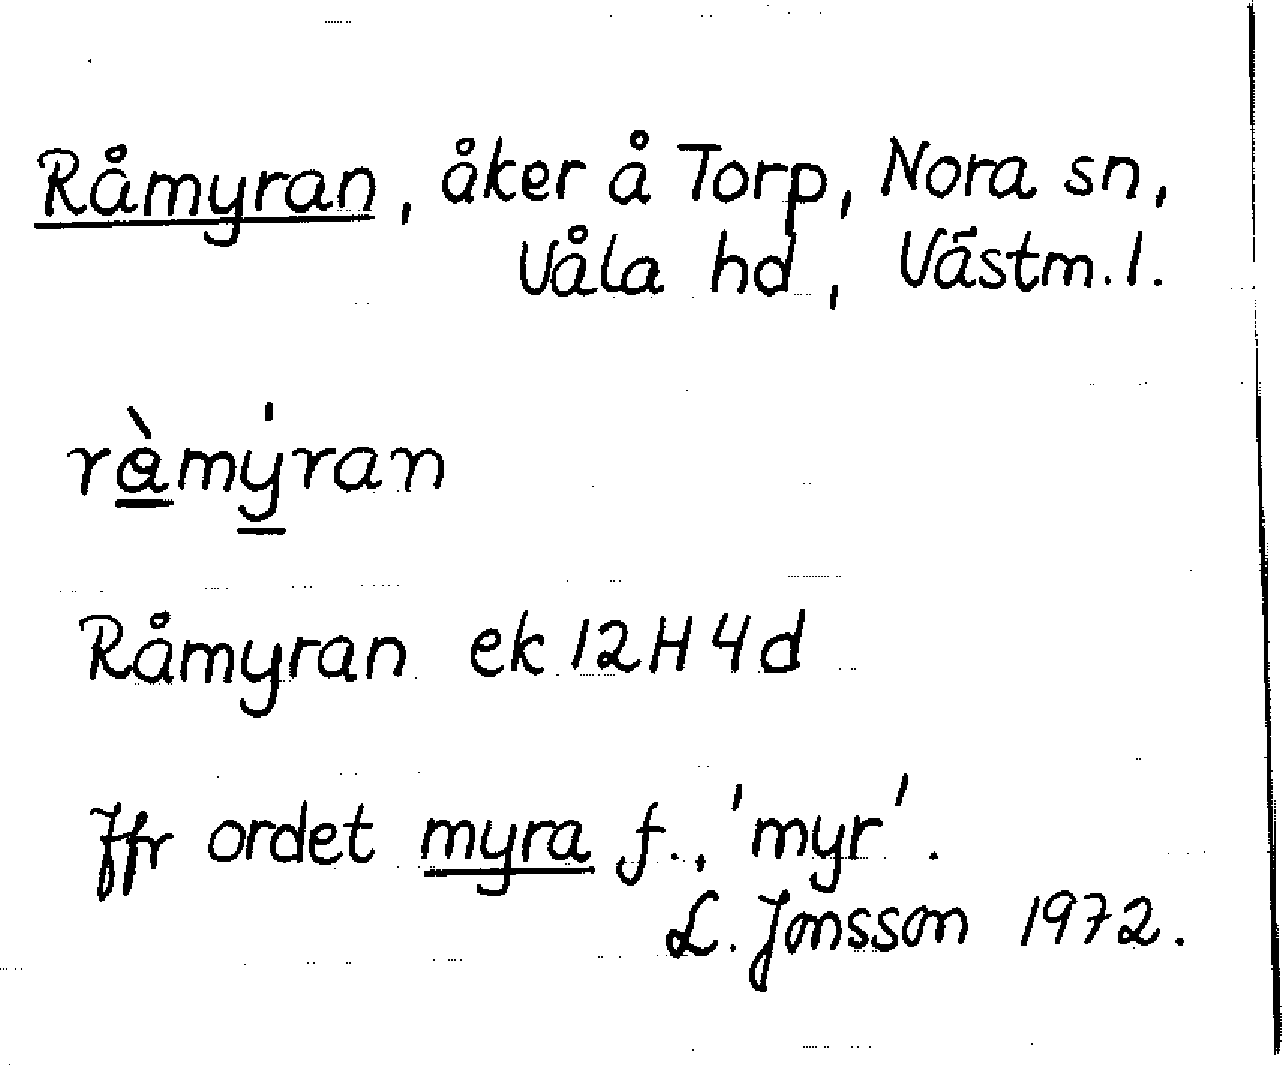 Råmyran, åker å Torp, Nora sn,
Våla hd, Västm. l.
ràmýran
Råmyran ek 12H4d
Jfr ordet myra f., 'myr'.
L. Jonsson 1972.